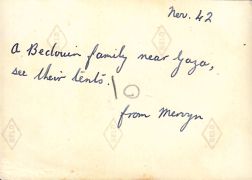 Nov. 42
A Bedouin family near Gaza,
see their tents.
10
from Mervyn